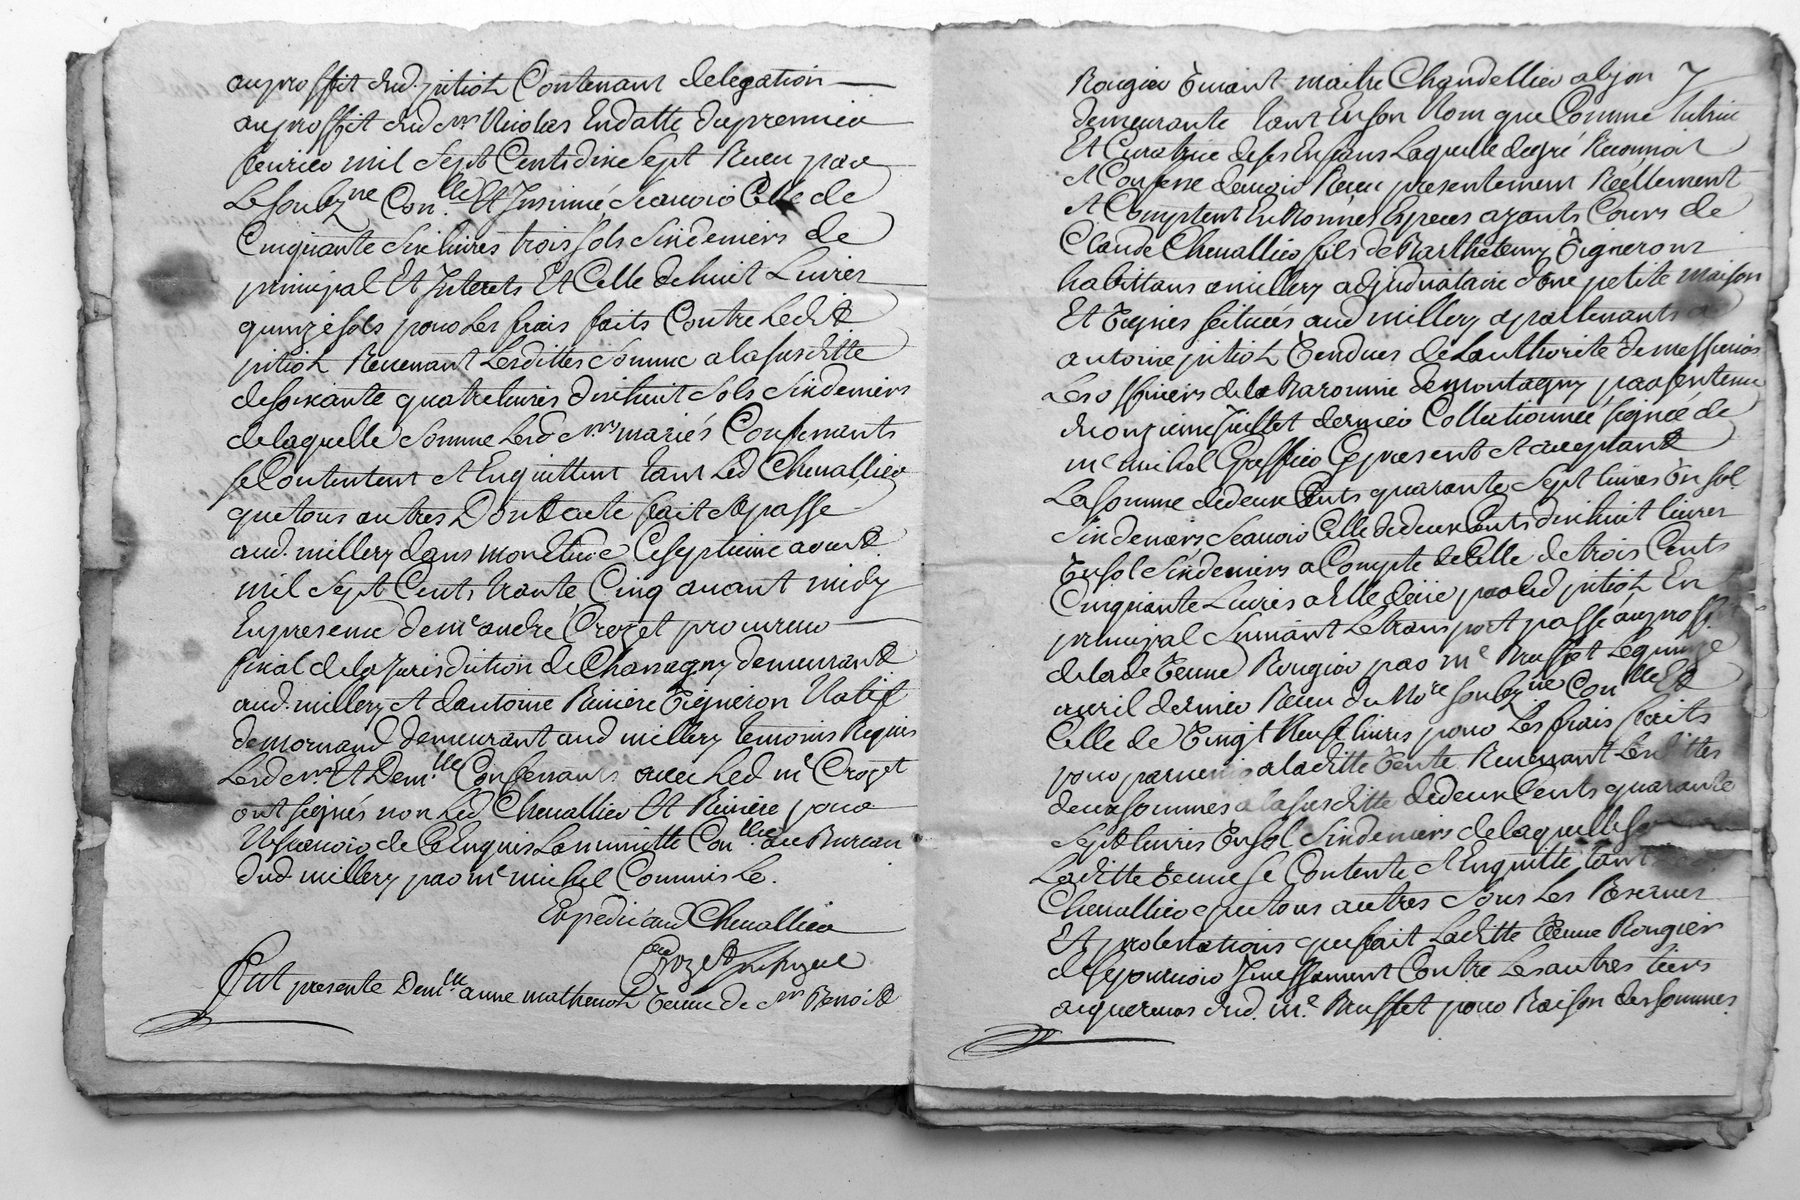 au proffit dud. pitiot Contenant delegation
au proffit dud sr Nicolas En datte du premier
feurier mil Sept Cents dix Sept Receu par
Le soubzne Conlle Et Insinué Scauoir Celle de
Cinquante Six liures trois sols Six deniers de
principal Et Interets Et Celle de huit Liures
quinze sols pour Les frais faits Contre Ledit
pitiot Reuenant Lesdittes Somme a la susditte
de soixante quatre liures dix huit sols Six deniers
de laquelle Somme Lesd srs mariés Confessants
se Contentent Et Enquittent tant Led Cheuallier
que tous autres Dont acte fait Et passé
aud. millery dans mon Etude Ce septieme aoust
mil Sept Cents trante Cinq auant midy
En presence de me andré Crozet procureur
fiscal de la Jurisdiction de Chassagny demeurant
aud. millery Et dantoine Riuiere Vigneron Natif
de mornand demeurant aud millery temoins Requis
Lesd sr Et Demlle Confessants auec Led me Crozet
ont signés non Led Cheuallier Et Riuiere pour
Ne scauoir de Ce Enquis La minutte Conlle au Bureau
dud millery par me michel Commis Le.
Expedié aud Cheuallier
Crozet
Fut presente Demlle anne mathenot Veuue de sr Benoit
Rougier Viuant maitre Chandellier a lyon 7
demeurante tant En son Nom que Comme tutrice
Et Curatrice de ses Enfans Laquelle de gré Reconnoit
Et Confesse dauoir Receu presentement Réellement
Et Comptent En Bonnes Especes ayants Cours de
Claude Cheuallier fils de Barthelemy Vigneron
habittans a millery adjudicataire d'une petite maison
Et Vignes scituées aud millery apartenants a
antoine pitiot Vendues de Lauthorité de messieurs
Les officiers de la Baronnie de montagny par sentence
du onzieme Juillet dernier Collationnée signée de
me michel Greffier Cy present Et acceptant
La somme de deux Cents quarante Sept liures Un sol
Six deniers Scauoir Celle de deux Cents dix huit liures
Un sol Six deniers a Compte de Celle de trois Cents
Cinquante Liures a Elle düe par led pitiot En
principal Suiuant Le transport passé au proffit
de lade Veuue Rougier par me Brusset Le quinze
auril dernier Receu du Nore soubzne Conlle Et
Celle de Vingt Neuf liures pour Les frais faits
pour paruenir a laditte Vente Reuenant Lesdittes
deux sommes a la susditte de deux Cents quarante
Sept liures Un sol Six deniers de laquelle
Laditte Veuue se Contente Et Enquitte tant
Cheuallier que tous autres Sous Les Reserues
Et protestations que fait Laditte Veuue Rougier
de se pouruoir Incessament Contre Les autres tiers
acquereurs dud. me Brusset pour Raison des sommes